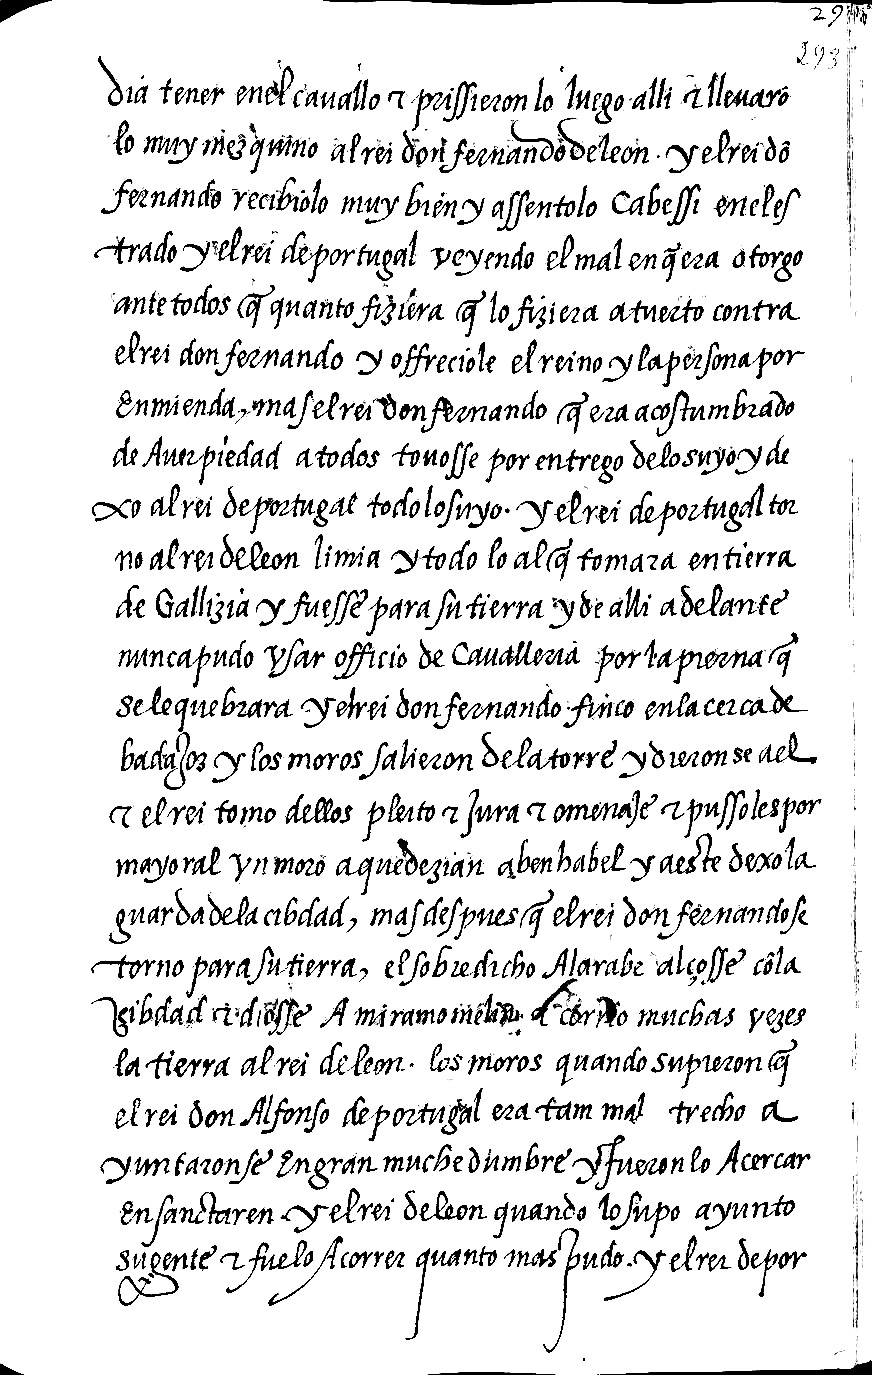 29
293
dia tener enel cauallo τ prissieron lo luego alli τ lleuarō
lo muy mezquino al rei don fernando de leon . y el rei dō
fernando recibiolo muy bien y assentolo Cabessi en el es
trado y el rei de portugal veyendo el mal en q̃ era otorgo
ante todos q̃ quanto fiziera q̃ lo fiziera a tuerto contra
el rei don fernando y offreciole el reino y la persona por
Enmienda, mas el rei don fernando q̃ era acostumbrado
de Auer piedad a todos touosse por entrego de lo suyo y de
xo al rei de portugal todo lo suyo . y el rei de portugal tor
no al rei de leon limia y todo lo al q̃ tomara en tierra
de Gallizia y fuesse para su tierra y de alli adelante
nunca pudo vsar officio de Caualleria por la pierna q̃
se le quebrara y el rei don fernando finco en la cerca de
badajoz y los moros salieron de la torre y dieron se a el
τ el rei tomo dellos pleito τ Jura τ omenaje τ pussoles por
mayoral vn moro a que dezian abenhabel y a este dexo la
guarda de la cibdad, mas despues q̃ el rei don fernando se
torno para su tierra, el sobredicho Alarabe alçosse cō la
cibdad τ diosse A miramomelin τ corrio muchas vezes
la tierra al rei de leon . los moros quando supieron q̃
el rei don Alfonso de portugal era tam mal trecho a
yuntaronse En gran muchedumbre y fueron lo Acercar
En sanctaren . y el rei de leon quando lo supo ayunto
su gente τ fuelo Acorrer quanto mas pudo . y el rei de por